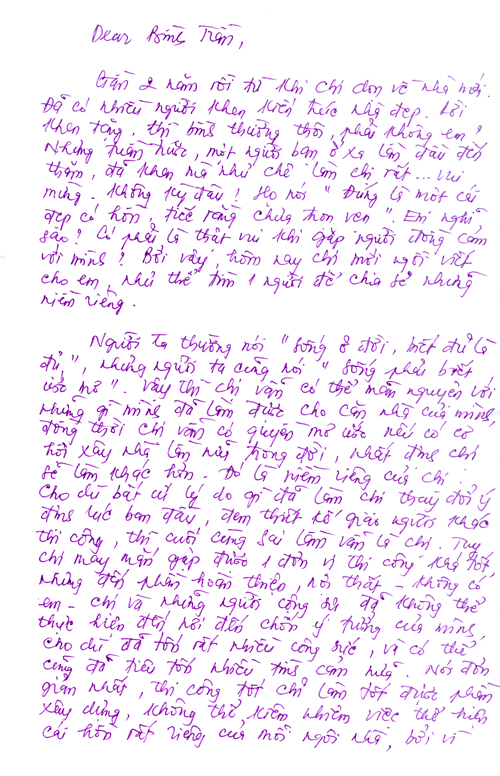 Dear Bình Trần,
Gần 2 năm rồi từ khi chị dọn về nhà mới.
Đã có nhiều người khen kiến trúc nhà đẹp. Lời
khen tặng, thì bình thường thôi, phải không em?
Nhưng tuần trước, một người bạn ở xa lần đầu đến
thăm, đã khen mà như chê làm chị rất... vui
mừng. Không kỳ đâu! Họ nói "Đúng là một cái
đẹp có hồn, tiếc rằng chưa trọn vẹn". Em nghĩ
sao? Có phải là thật vui khi gặp người đồng cảm
với mình? Bởi vậy, hôm nay chị mới ngồi viết
cho em, như thể tìm 1 người để chia sẻ những
niềm riêng.
Người ta thường nói "sống ở đời, biết đủ là
đủ", nhưng người ta cũng nói "sống phải biết
ước mơ". Vậy thì chị vẫn có thể mãn nguyện với
những gì mình đã làm được cho căn nhà của mình,
đồng thời chị vẫn có quyền mơ ước nếu có cơ
hội xây nhà lần nữa trong đời, nhất định chị
sẽ làm khác hơn. Đó là niềm riêng của chị.
Cho dù bất cứ lý do gì đã làm chị thay đổi ý
định lúc ban đầu, đem thiết kế giao người khác
thi công, thì cuối cùng sai lầm vẫn là chị. Tuy
chị may mắn gặp được 1 đơn vị thi công khá tốt
nhưng đến phần hoàn thiện, nội thất - không có
em - chị và những người cộng sự đã không thể
thực hiện đến nơi đến chốn ý tưởng của mình,
cho dù đã tốn rất nhiều công sức, và có thể
cũng đã tiêu tốn nhiều tình cảm nữa. Nói đơn
giản nhất, thi công tốt chỉ làm tốt được phần
xây dựng, không thể kiêm nhiệm việc thể hiện
cái hồn rất riêng của mỗi ngôi nhà, bởi vì